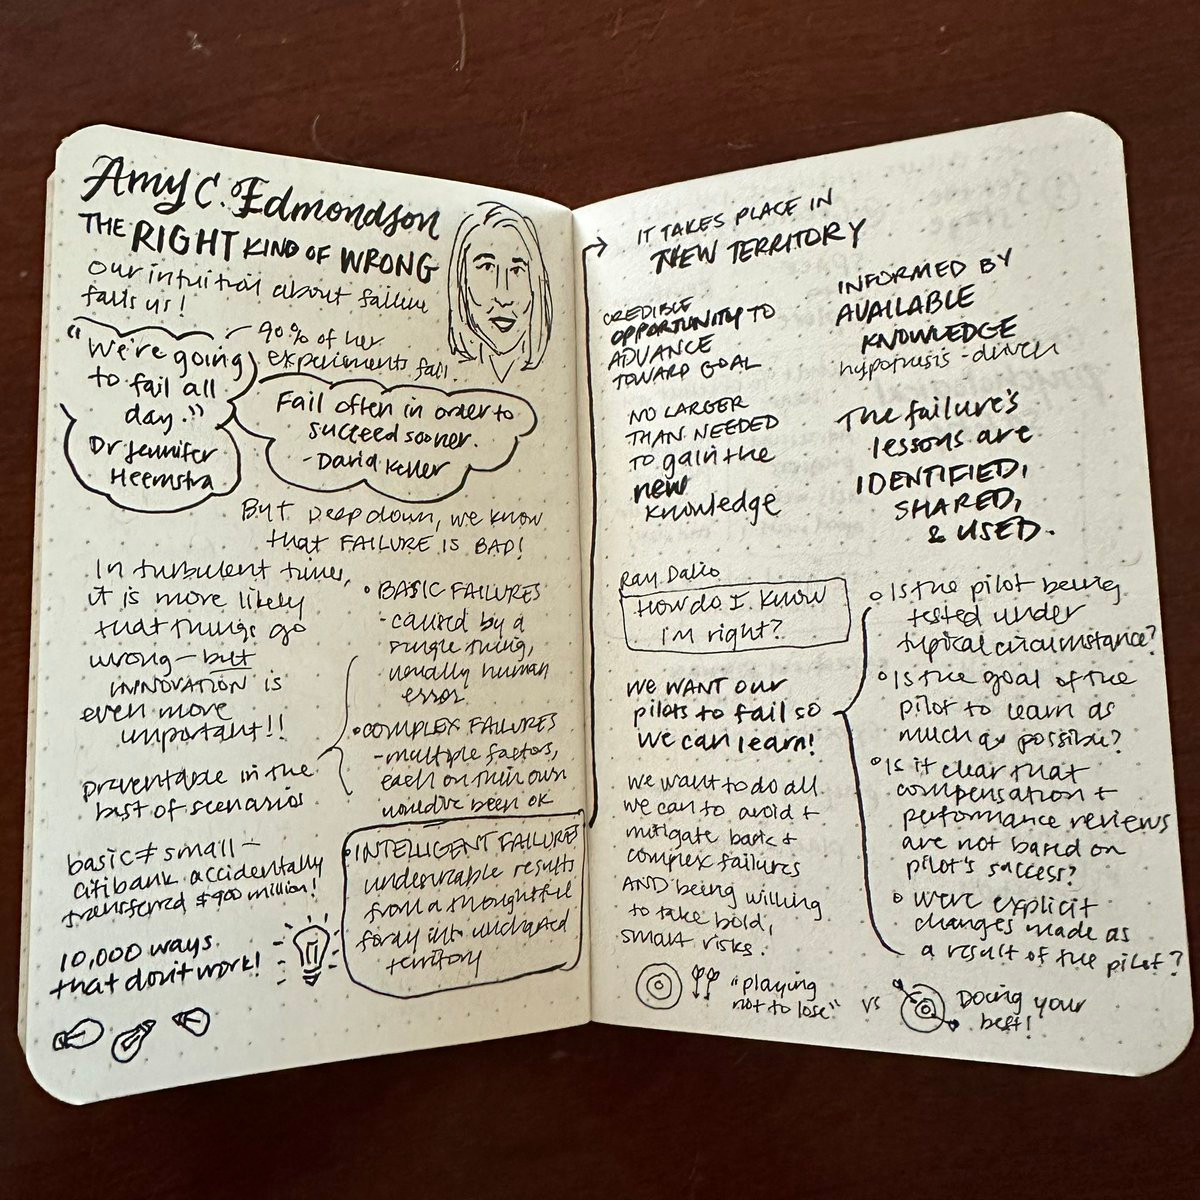 Amy C. Edmondson
THE RIGHT KIND OF WRONG
our intuition about failure
fails us!
"We're going
to fail all
day."
Dr Jennifer
Heemstra
90% of her
experiments fail.
Fail often in order to
succeed sooner.
- David Kelley
But Deep down, we know
that FAILURE IS BAD!
In turbulent times,
it is more likely
that things go
wrong - but
INNOVATION is
even more
important!!
preventable in the
best of scenarios
basic ≠ small -
citibank accidentally
transferred $900 million!
10,000 ways
that don't work!
• BASIC FAILURES
- caused by a
single thing,
usually human
error
• COMPLEX FAILURES
- multiple factors,
each on their own
would've been ok
• INTELLIGENT FAILURES
undesirable results
from a thoughtful
foray into uncharted
territory
IT TAKES PLACE IN
NEW TERRITORY
CREDIBLE
OPPORTUNITY TO
ADVANCE
TOWARD GOAL
INFORMED BY
AVAILABLE
KNOWLEDGE
hypothesis-driven
NO LARGER
THAN NEEDED
TO gain the
new
knowledge
The failure's
lessons are
IDENTIFIED,
SHARED,
& USED.
Ray Dalio
How do I know
I'm right?
WE WANT our
pilots to fail so
we can learn!
we want to do all
we can to avoid +
mitigate basic +
complex failures
AND being willing
to take bold,
smart risks.
o Is the pilot being
tested under
typical circumstance?
o Is the goal of the
pilot to learn as
much as possible?
o Is it clear that
compensation +
performance reviews
are not based on
pilot's success?
o Were explicit
changes made as
a result of the pilot?
"playing
not to lose"
vs
Doing your
best!